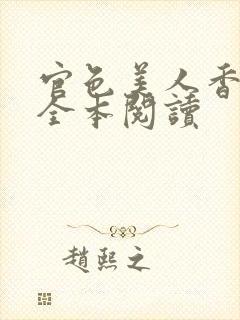 官色美人香
全本閱讀
趙熙之